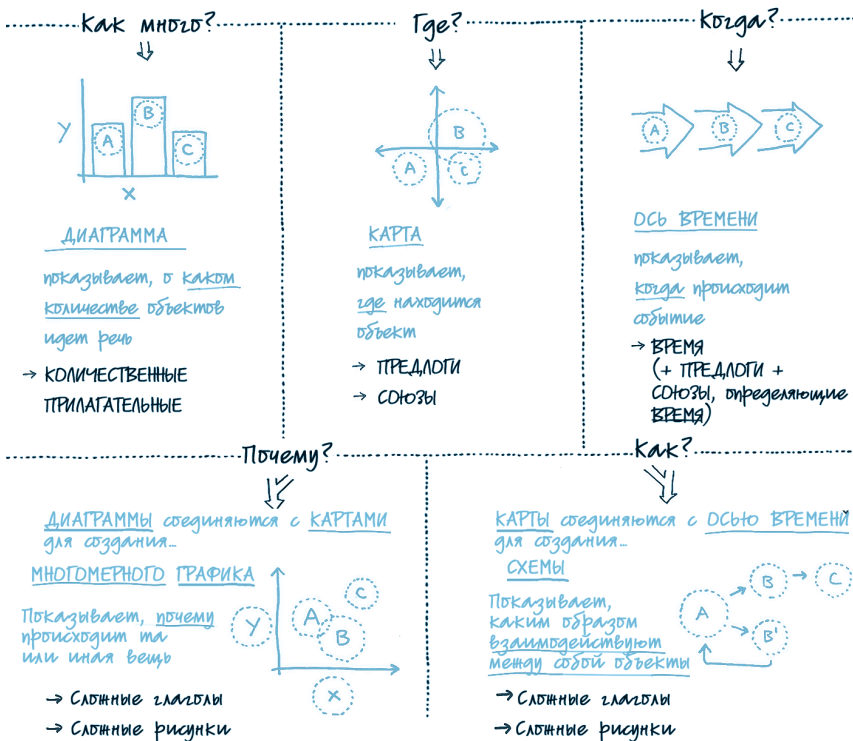 Как много?
Y
A
B
C
X
ДИАГРАММА
показывает, о каком
количестве объектов
идет речь
→ КОЛИЧЕСТВЕННЫЕ
ПРИЛАГАТЕЛЬНЫЕ
Где?
B
A
C
КАРТА
показывает,
где находится
объект
→ ПРЕДЛОГИ
→ СОЮЗЫ
Когда?
A
B
C
ОСЬ ВРЕМЕНИ
показывает,
когда происходит
событие
→ ВРЕМЯ
(+ ПРЕДЛОГИ +
СОЮЗЫ, определяющие
ВРЕМЯ)
Почему?
ДИАГРАММЫ соединяются с КАРТАМИ
для создания...
МНОГОМЕРНОГО ГРАФИКА
Показывает, почему
происходит та
или иная вещь
Y
A
B
C
X
→ Сложные глаголы
→ Сложные рисунки
Как?
КАРТЫ соединяются с ОСЬЮ ВРЕМЕНЙ
для создания...
СХЕМЫ
Показывает,
каким образом
взаимодействуют
между собой объекты
A
B → C
B'
→ Сложные глаголы
→ Сложные рисунки